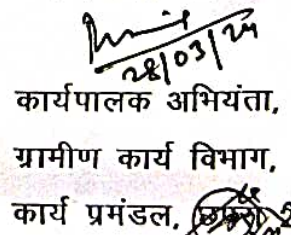 28/03/24
कार्यपालक अभियंता,
ग्रामीण कार्य विभाग,
कार्य प्रमंडल,